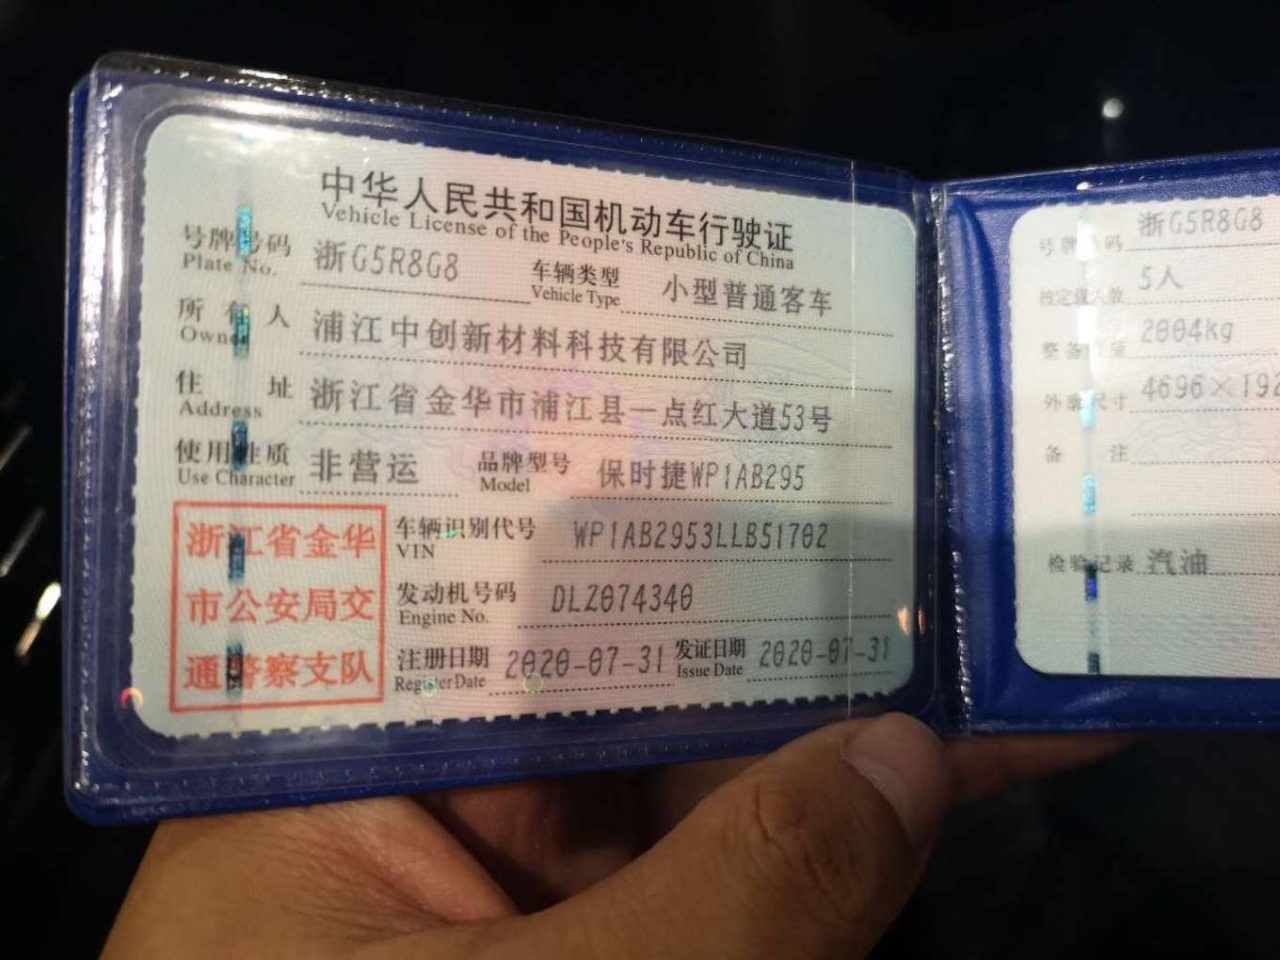 中华人民共和国机动车行驶证
Vehicle License of the People's Republic of China
号牌号码 浙G5R8G8 车辆类型 小型普通客车
Plate No. Vehicle Type
所有人 浦江中创新材料科技有限公司
Owner
住址 浙江省金华市浦江县一点红大道53号
Address
使用性质 非营运 品牌型号 保时捷WP1AB295
Use Character Model
浙江省金华
市公安局交
通警察支队
车辆识别代号 WP1AB2953LLB51702
VIN
发动机号码 DLZ074340
Engine No.
注册日期 2020-07-31 发证日期 2020-07-31
Register Date Issue Date
号牌号码 浙G5R8G8
核定载人数 5人
整备质量 2004kg
外廓尺寸 4696×192
备注
检验记录 汽油